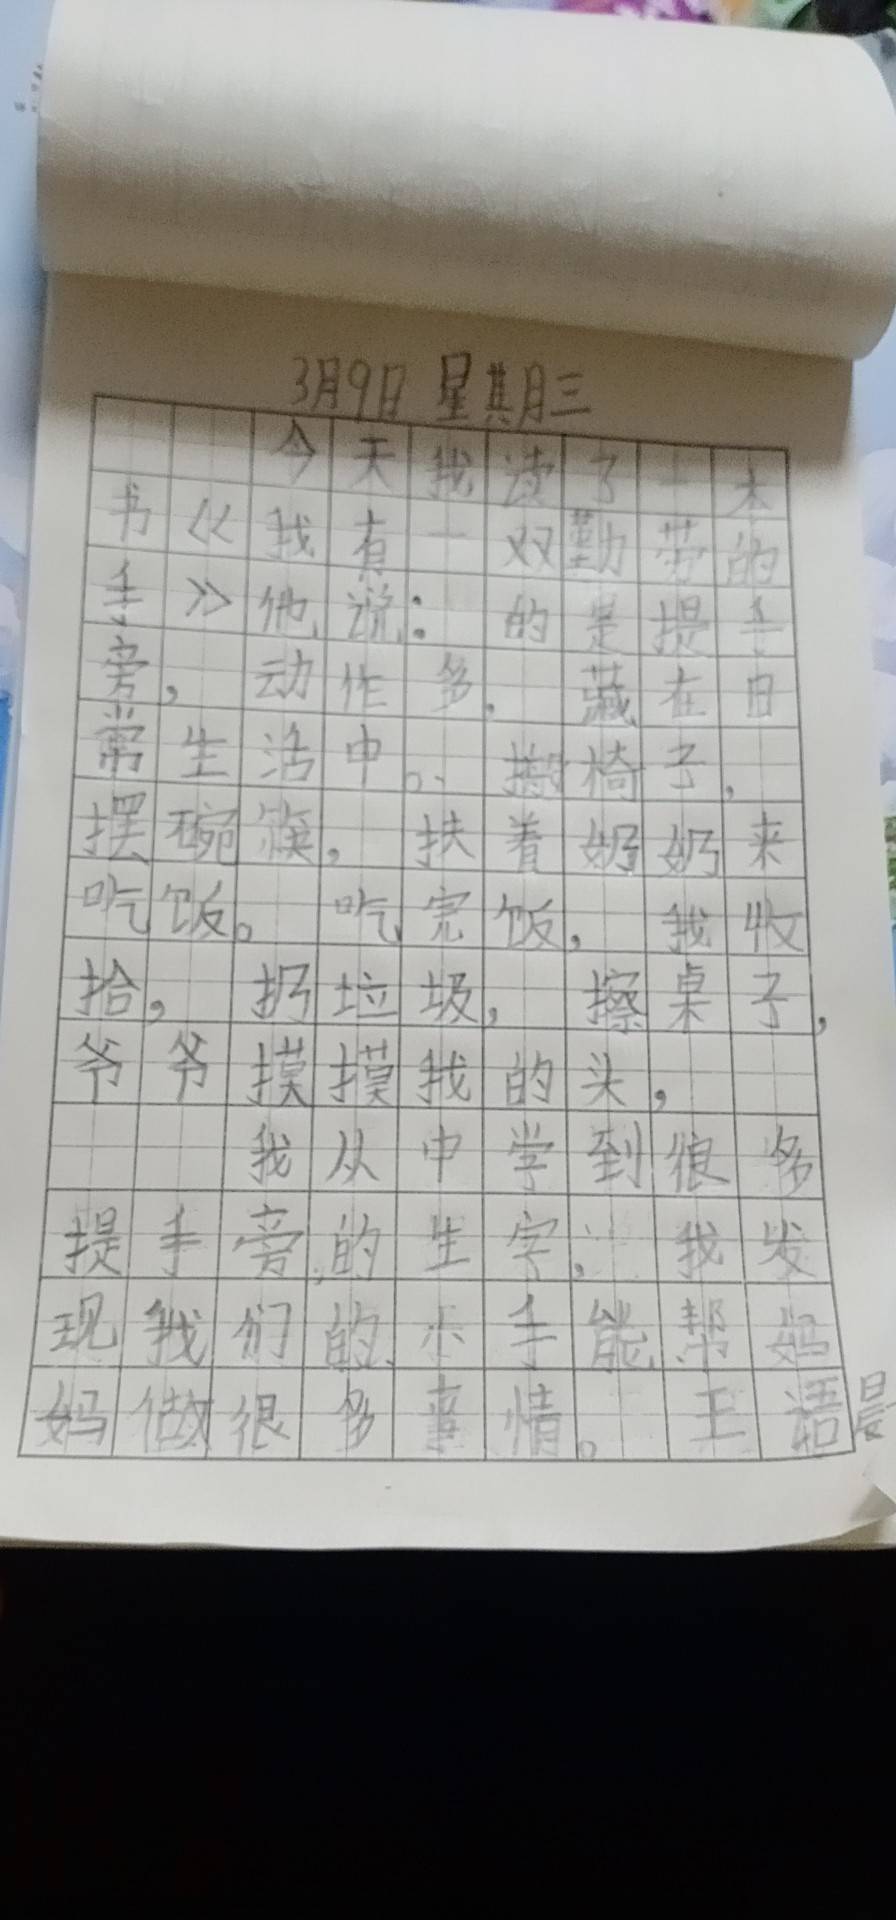 3月9日 星其月三
今天我读了一本
书《我有一双勤劳的
手》他说：的是提手
旁，动作多，藏在日
常生活中。搬椅子，
摆碗筷，扶着奶奶来
吃饭。吃完饭，我收
拾，扔垃圾，擦桌子，
爷爷摸摸我的头，
我从中学到很多
提手旁的生字，我发
现我们的小手能帮妈
妈做很多事情。王语晨